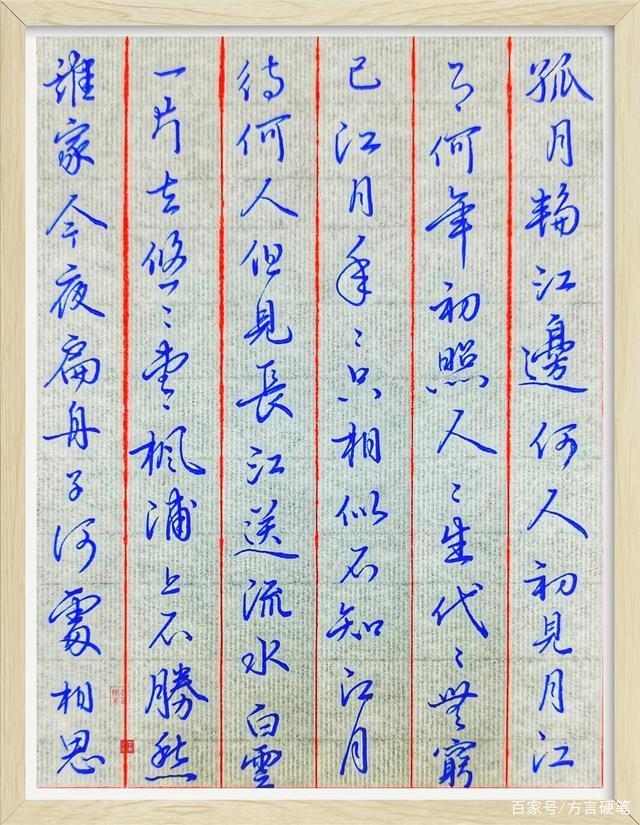 孤月輪江邊何人初見月江
月何年初照人〻生代〻無窮
已江月年〻只相似不知江月
待何人但見長江送流水白雲
一片去悠〻青〻楓浦上不勝愁
誰家今夜扁舟子何處相思
百家号/方言硬笔